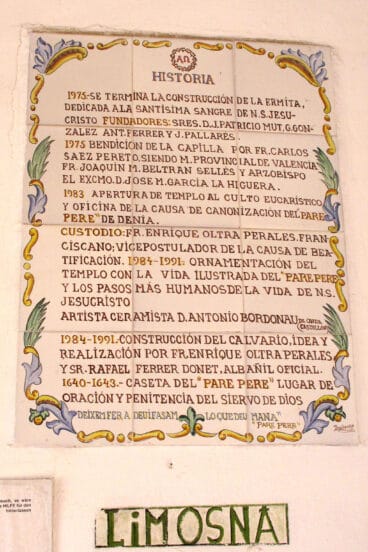 AΩ
HISTORIA
1975.-SE TERMINA LA CONSTRUCCIÓN DE LA ERMITA,
DEDICADA A LA SANTÍSIMA SANGRE DE N.S. JESU-
CRISTO FUNDADORES: SRES. D.J. PATRICIO MUT, G. GON-
ZALEZ ANT. FERRER Y J. PALLARÉS.
1975 BENDICIÓN DE LA CAPILLA POR FR. CARLOS
SAEZ PERETO, SIENDO M. PROVINCIAL DE VALENCIA
FR. JOAQUIN M. BELTRAN SELLÉS Y ARZOBISPO
EL EXCMO. D. JOSE M. GARCÍA LA HIGUERA.
1983 APERTURA DE TEMPLO AL CULTO EUCARÍSTICO
Y OFICINA DE LA CAUSA DE CANONIZACIÓN DEL "PARE
PERE" DE DENIA.
CUSTODIO: FR. ENRIQUE OLTRA PERALES, FRAN-
CISCANO; VICEPOSTULADOR DE LA CAUSA DE BEA-
TIFICACIÓN. 1984-1991: ORNAMENTACIÓN DEL
TEMPLO CON LA VIDA ILUSTRADA DEL "PARE PERE"
Y LOS PASOS MÁS HUMANOS DE LA VIDA DE N.S.
JESUCRISTO
ARTISTA CERAMISTA D. ANTONIO BORDONAU
1984-1991. CONSTRUCCIÓN DEL CALVARIO, IDEA Y
REALIZACIÓN POR FR. ENRIQUE OLTRA PERALES
Y SR. RAFAEL FERRER DONET, ALBAÑIL OFICIAL.
1640-1643.- CASETA DEL "PARE PERE" LUGAR DE
ORACIÓN Y PENITENCIA DEL SIERVO DE DIOS
"DEIXEM FER A DEU I FASAM LO QUE DEU MANA,"
"PARE PERE"
LIMOSNA